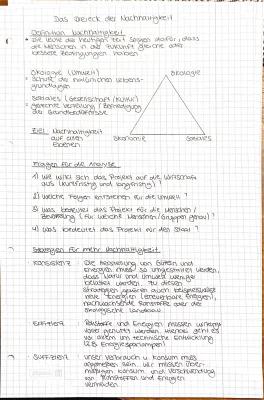 Das Dreieck der Nachhaltigkeit
Definition Nachhaltigkeit
Die Leute der heutigen Zeit sorgen dafür, dass
die Menschen in der Zukunft gleiche oder
bessere Bedingungen haben
Ökologie (Umwelt)
= Schutz der natürlichen Lebens-
grundlagen
Ökologie
Soziales (Gesellschaft / Kultur)
= gerechte Verteilung / Befriedigung
der Grundbedürfnisse
Ziel: Nachhaltigkeit
auf allen
Ebenen
Ökonomie
Soziales
Fragen für die Analyse
1) Wie wirkt sich das Projekt auf die Wirtschaft
aus (kurzfristig und langfristig)?
2) Welche Folgen entstehen für die Umwelt?
3) Was bedeutet das Projekt für die Menschen /
Bevölkerung (für welche Menschen/Gruppen genau)?
4) Was bedeutet das Projekt für den Staat?
Strategien für mehr Nachhaltigkeit
Konsistenz: Die Herstellung von Gütern und
Energien muss so umgestaltet werden,
dass Natur und Umwelt weniger
belastet werden. Zu diesen
Strategien gehören auch beispielsweise
neue Energien (erneuerbare Energien),
nachwachsende Rohstoffe oder der
ökologische Landbau.
Effizienz: Rohstoffe und Energien müssen
genutzt werden. Hierbei geht es
vor allem um technische Entwicklung
(z.B. Energiesparlampen)
Suffizienz: unser Verbrauch u. Konsum muss
werden. Wir müssen über-
mäßigen Konsum und Verschwendung
von Rohstoffen und Energien
vermeiden.